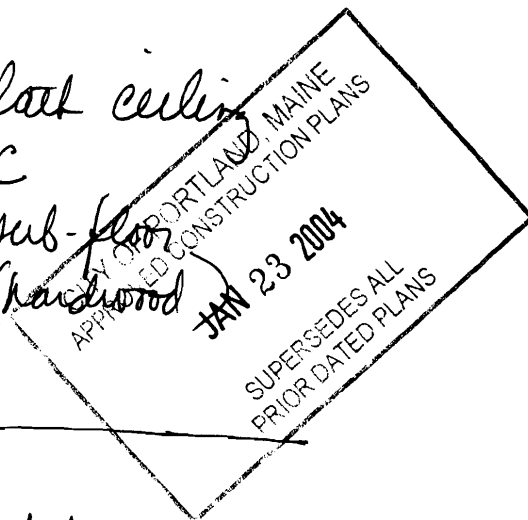 lath ceiling
C
sub-floor
hardwood
CITY OF PORTLAND, MAINE
APPROVED CONSTRUCTION PLANS
JAN 23 2004
SUPERSEDES ALL
PRIOR DATED PLANS